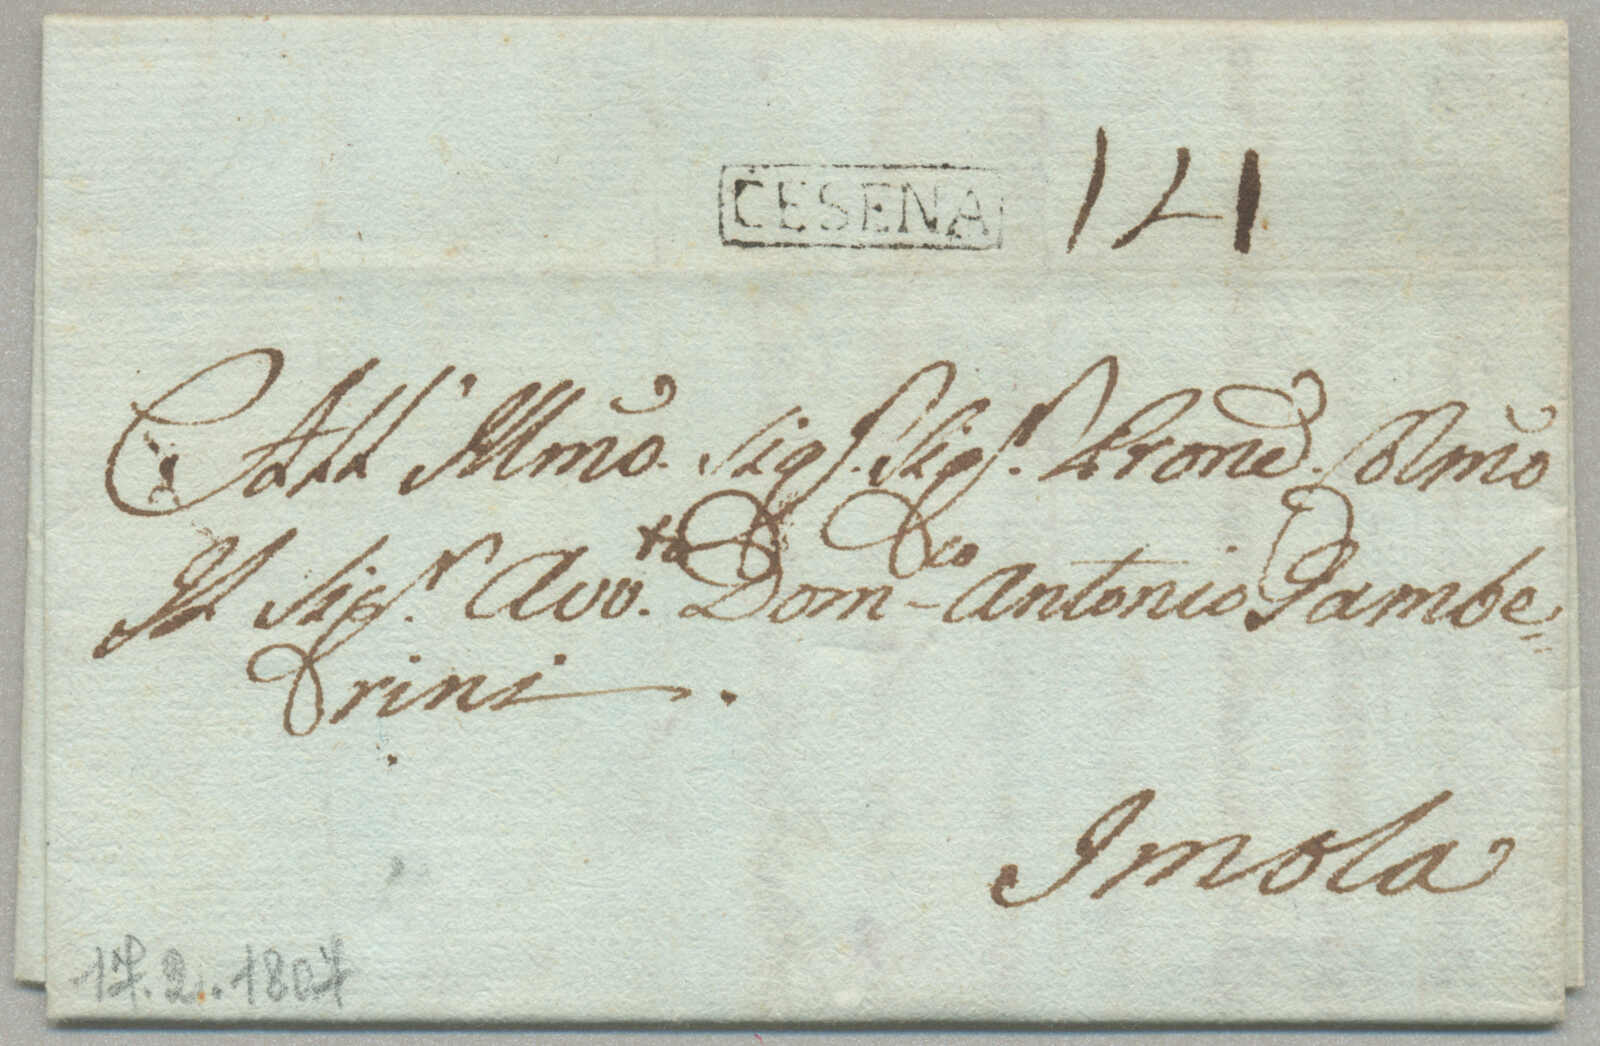 CESENA
All' Illmo. Sigr. Sigr. Prone Colmo
Il Sigr. Avvto. Domco Antonio Gambe=
rini.
Imola
17.2.1807